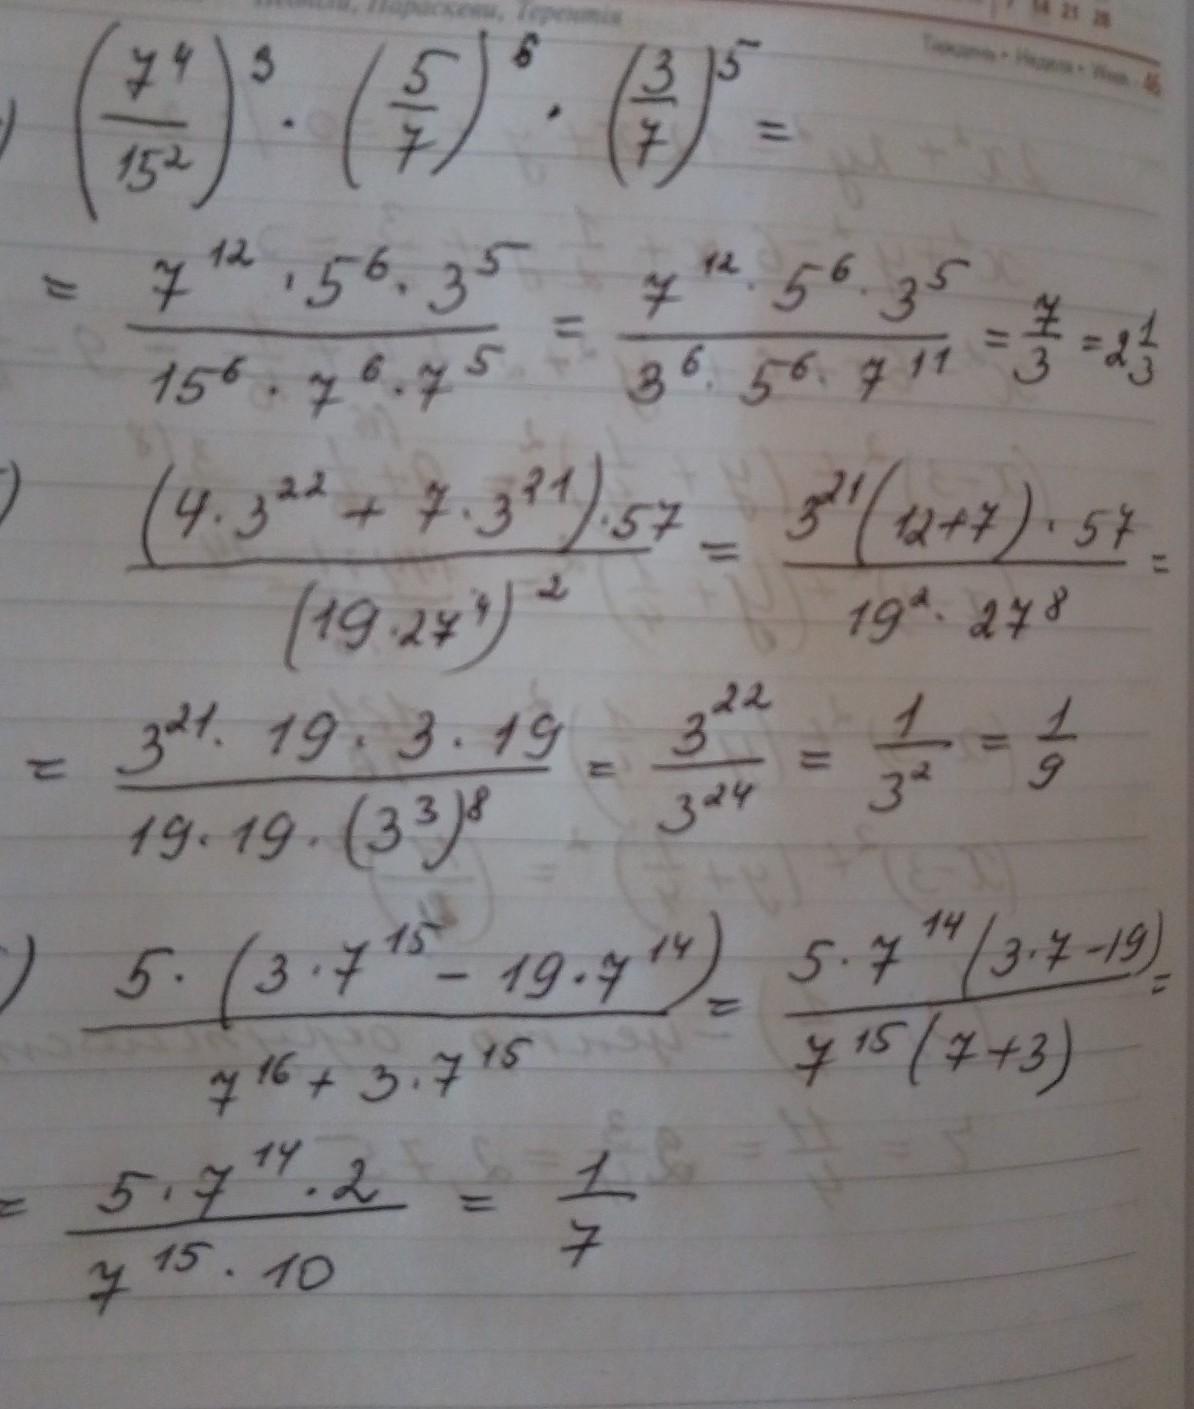 Параскеви, Терентія
7 14 21 28
Тиждень • Неделя • Week 46
) (7⁴/15²)³ · (5/7)⁶ · (3/7)⁵ =
= (7¹² · 5⁶ · 3⁵)/(15⁶ · 7⁶ · 7⁵) = (7¹² · 5⁶ · 3⁵)/(3⁶ · 5⁶ · 7¹¹) = 7/3 = 2 1/3
) ((4 · 3²² + 7 · 3²¹) · 57)/(19 · 27⁴)² = (3²¹(12+7) · 57)/(19² · 27⁸) =
= (3²¹ · 19 · 3 · 19)/(19 · 19 · (3³)⁸) = 3²²/3²⁴ = 1/3² = 1/9
) (5 · (3 · 7¹⁵ − 19 · 7¹⁴))/(7¹⁶ + 3 · 7¹⁵) = (5 · 7¹⁴(3 · 7 − 19))/(7¹⁵(7+3)) =
= (5 · 7¹⁴ · 2)/(7¹⁵ · 10) = 1/7